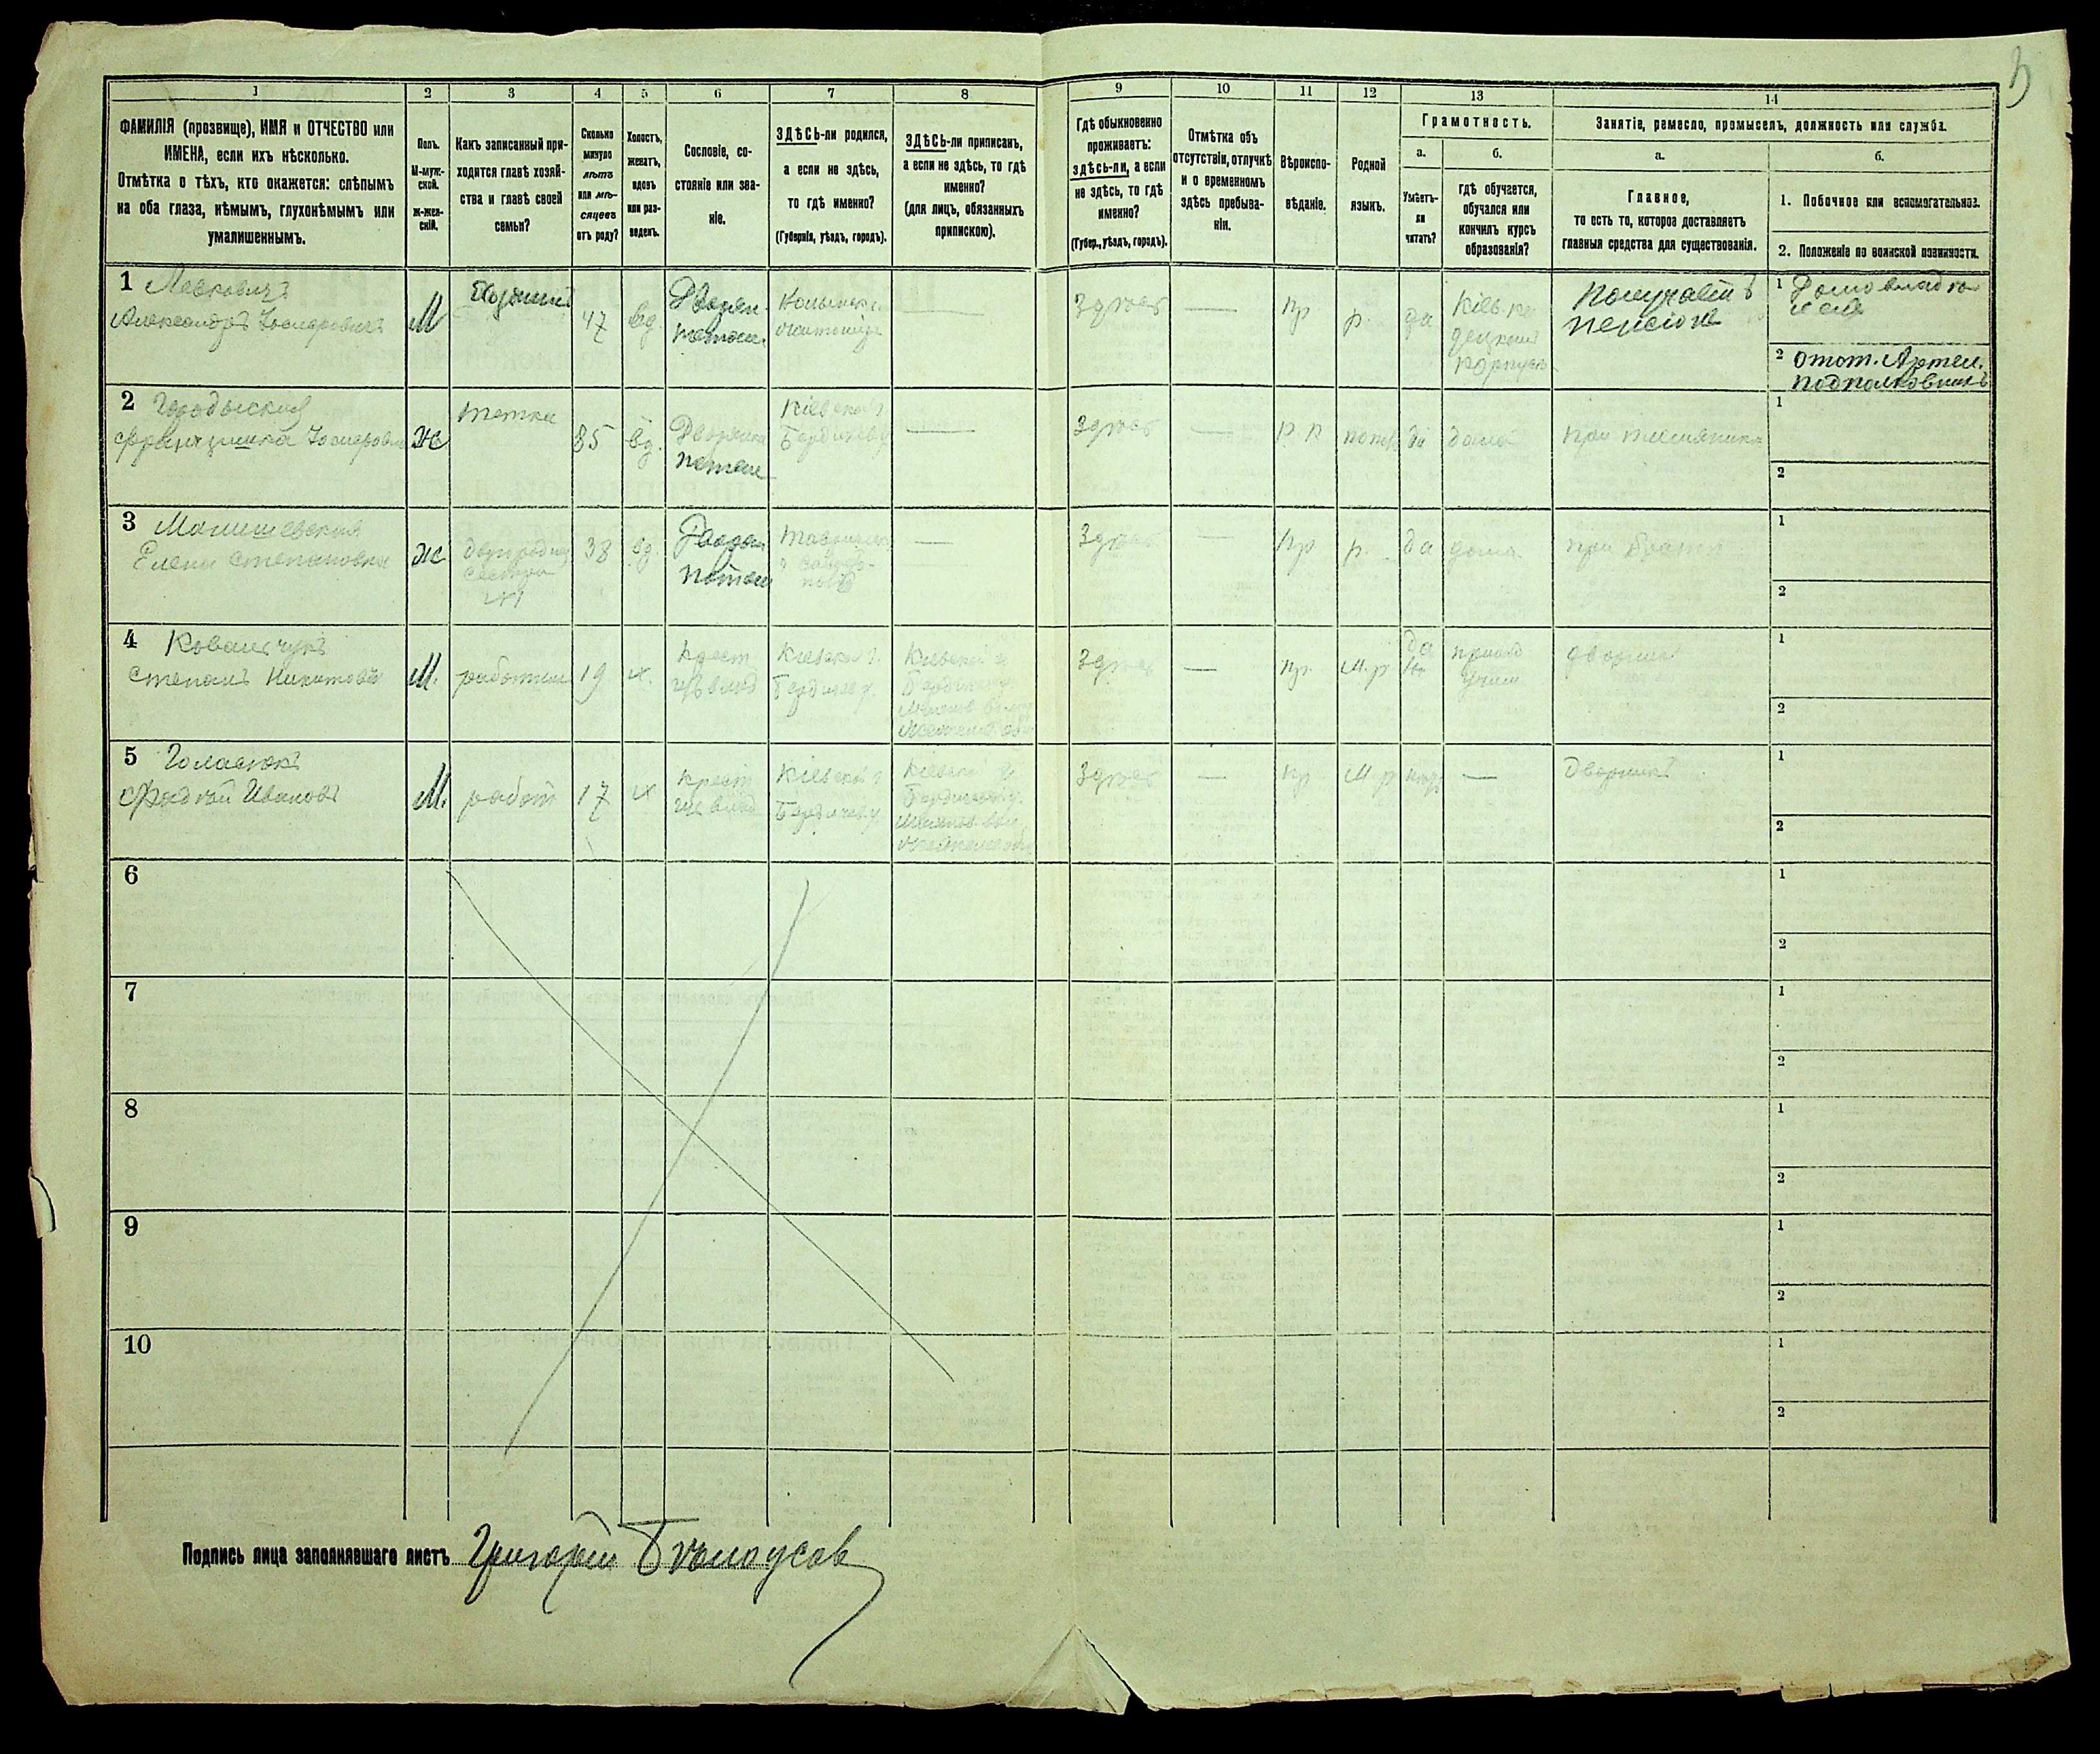 1 2 3 4 5 6 7 8 9 10 11 12 13 14
ФАМИЛІЯ (прозвище), ИМЯ и ОТЧЕСТВО или
ИМЕНА, если ихъ нѣсколько.
Отмѣтка о тѣхъ, кто окажется: слѣпымъ
на оба глаза, нѣмымъ, глухонѣмымъ или
умалишеннымъ.
Полъ.
М-муж-
ской.
ж-жен-
скій.
Какъ записанный при-
ходится главѣ хозяй-
ства и главѣ своей
семьи?
Сколько
минуло
лѣтъ
или мѣ-
сяцевъ
отъ роду?
Холостъ,
женатъ,
вдовъ
или раз-
веденъ.
Сословіе, со-
стояніе или зва-
ніе.
ЗДѢСЬ-ли родился,
а если не здѣсь,
то гдѣ именно?
(Губернія, уѣздъ, городъ).
ЗДѢСЬ-ли приписанъ,
а если не здѣсь, то гдѣ
именно?
(для лицъ, обязанныхъ
припискою).
Гдѣ обыкновенно
проживаетъ:
здѣсь-ли, а если
не здѣсь, то гдѣ
именно?
(Губер., уѣздъ, городъ).
Отмѣтка объ
отсутствіи, отлучкѣ
и о временномъ
здѣсь пребыва-
ніи.
Вѣроиспо-
вѣданіе.
Родной
языкъ.
Грамотность.
а.
Умѣетъ-
ли
читать?
б.
гдѣ обучается,
обучался или
кончилъ курсъ
образованія?
Занятіе, ремесло, промыселъ, должность или служба.
а.
Главное,
то есть то, которое доставляетъ
главныя средства для существованія.
б.
1. Побочное или вспомогательное.
2. Положеніе по воинской повинности.
1 Левковичъ
Александръ Іосифовичъ
М
Хозяинъ
47
вд.
Дворян.
потом.
Житоміръ
—
Здѣсь
—
пр
р.
да
Кіев. ка-
детскій
корпусъ
Получаетъ
пенсіонъ
1 Домовладѣ
2 отст. Артил.
подполковникъ
2 Городыская
Францишка Іосифовна
ж
тетка
85
вд.
Дворянка
потом
Кіевской г.
Бердичев у
—
Здѣсь
—
р к
польс
да
дома
при племяникѣ
1
2
3 Малишевская
Елена Степановна
ж
двоюродная
сестра
№1
38
вд.
Дворян
потом
—
Здѣсь
—
пр
р.
да
дома
при братѣ
1
2
4 Ковальчукъ
Степанъ Никитовъ
М.
работник
19
х.
Крест
изъ влад
Кіевской г.
Бердичев у.
Кіевской г
Бердичев у.
Здѣсь
—
пр.
м. р
да
училищ
дворникъ
1
2
5 Голасюкъ
Фадѣй Ивановъ
М.
работ
17
х
крест
изъ влад
Кіевской г
Бердичев у
Кіевской г
Бердичев у.
Здѣсь
—
пр
м р
—
Дворникъ
1
2
6
1
2
7
1
2
8
1
2
9
1
2
10
1
2
Подпись лица заполнявшаго листъ Григорій Бѣлоусов